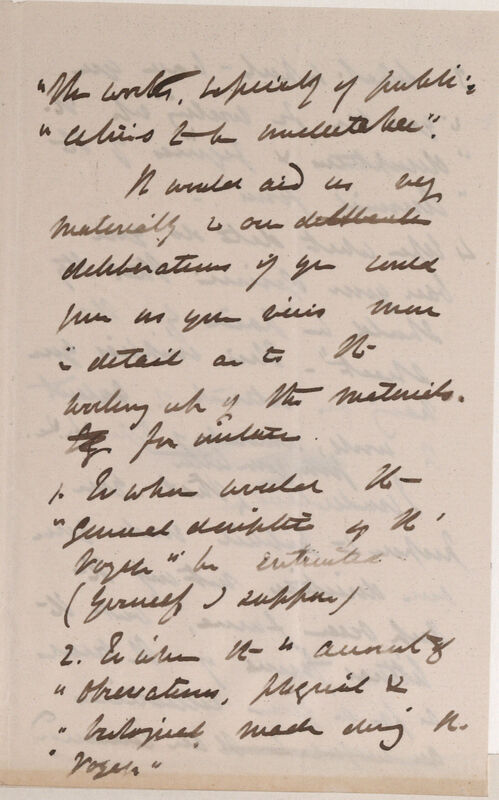 "the works, especially of publi-
"cations to be undertaken".
It would aid us very
materially in our
deliberations if you could
give us your views more
in detail as to the
working up of the materials.
for instance.
1. To whom would the
"General description of the
Voyage" be entrusted
(yourself I suppose)
2. To whom the account of
"Observations, physical &
"biological, made during the
"Voyage"